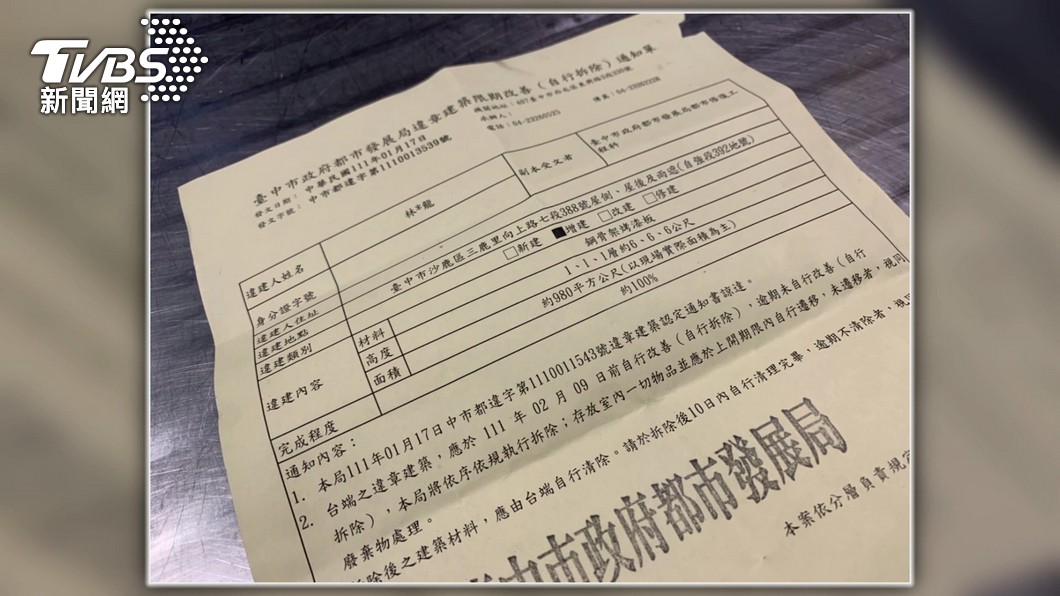 TVBS
新聞網
臺中市政府都市發展局違章建築限期改善（自行拆除）通知單
發文日期：中華民國111年01月17日
發文字號：中市都違字第1110013539號
機關地址：407臺中市西屯區
承辦人：
電話：04-23260523
傳真：04-23262228
違建人姓名
林*龍
副本受文者
臺中市政府都市發展局都市修復工程科
身分證字號
違建人住址
違建地點
臺中市沙鹿區三鹿里向上路七段388號屋側、屋後及雨遮(自強段392地號)
違建類別
□新建 ■增建 □改建 □修建
違建內容
材料
鋼骨架烤漆板
高度
1、1、1層約6、6、6公尺
面積
約980平方公尺(以現場實際面積為主)
完成程度
約100%
通知內容：
1. 本局111年01月17日中市都違字第1110011543號違章建築認定通知書諒達。
2. 台端之違章建築，應於 111 年 02 月 09 日前自行改善（自行拆除），逾期未自行改善（自行
拆除），本局將依序依規執行拆除；存放室內一切物品並應於上開期限內自行遷移，未遷移者，視同
廢棄物處理。
拆除後之建築材料，應由台端自行清除。請於拆除後10日內自行清理完畢，逾期不清除者，視
中市政府都市發展局
本案依分層負責規定